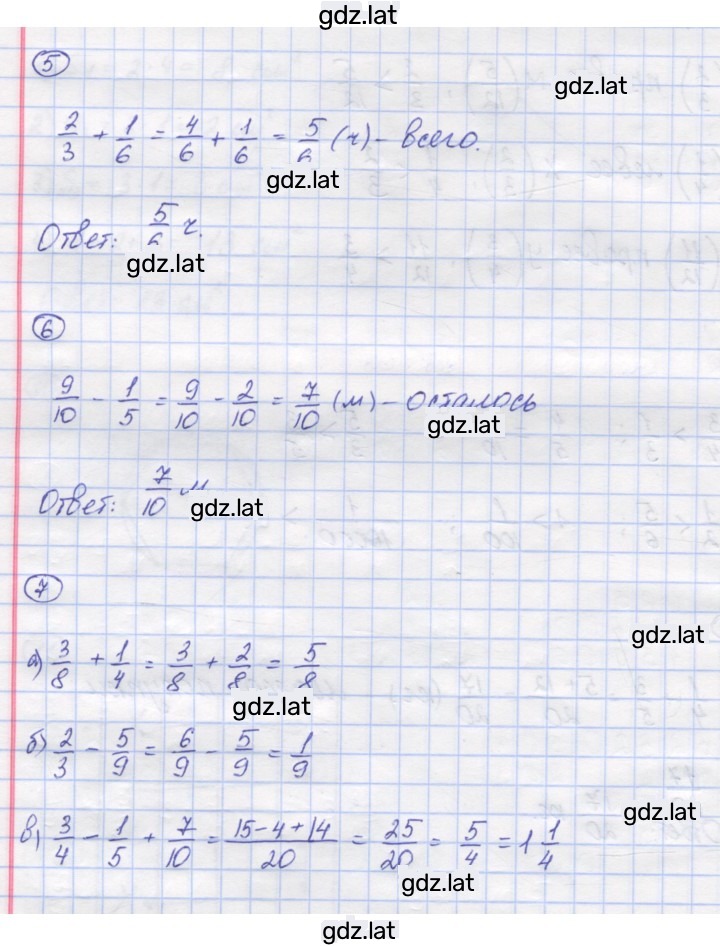 gdz.lat
5
gdz.lat
2/3 + 1/6 = 4/6 + 1/6 = 5/6 (ч) - всего.
gdz.lat
Ответ: 5/6 ч.
gdz.lat
6
9/10 - 1/5 = 9/10 - 2/10 = 7/10 (м) - осталось
gdz.lat
Ответ: 7/10 м
gdz.lat
7
gdz.lat
а) 3/8 + 1/4 = 3/8 + 2/8 = 5/8
gdz.lat
б) 2/3 - 5/9 = 6/9 - 5/9 = 1/9
gdz.lat
в) 3/4 - 1/5 + 7/10 = 15-4+14/20 = 25/20 = 5/4 = 1 1/4
gdz.lat
gdz.lat